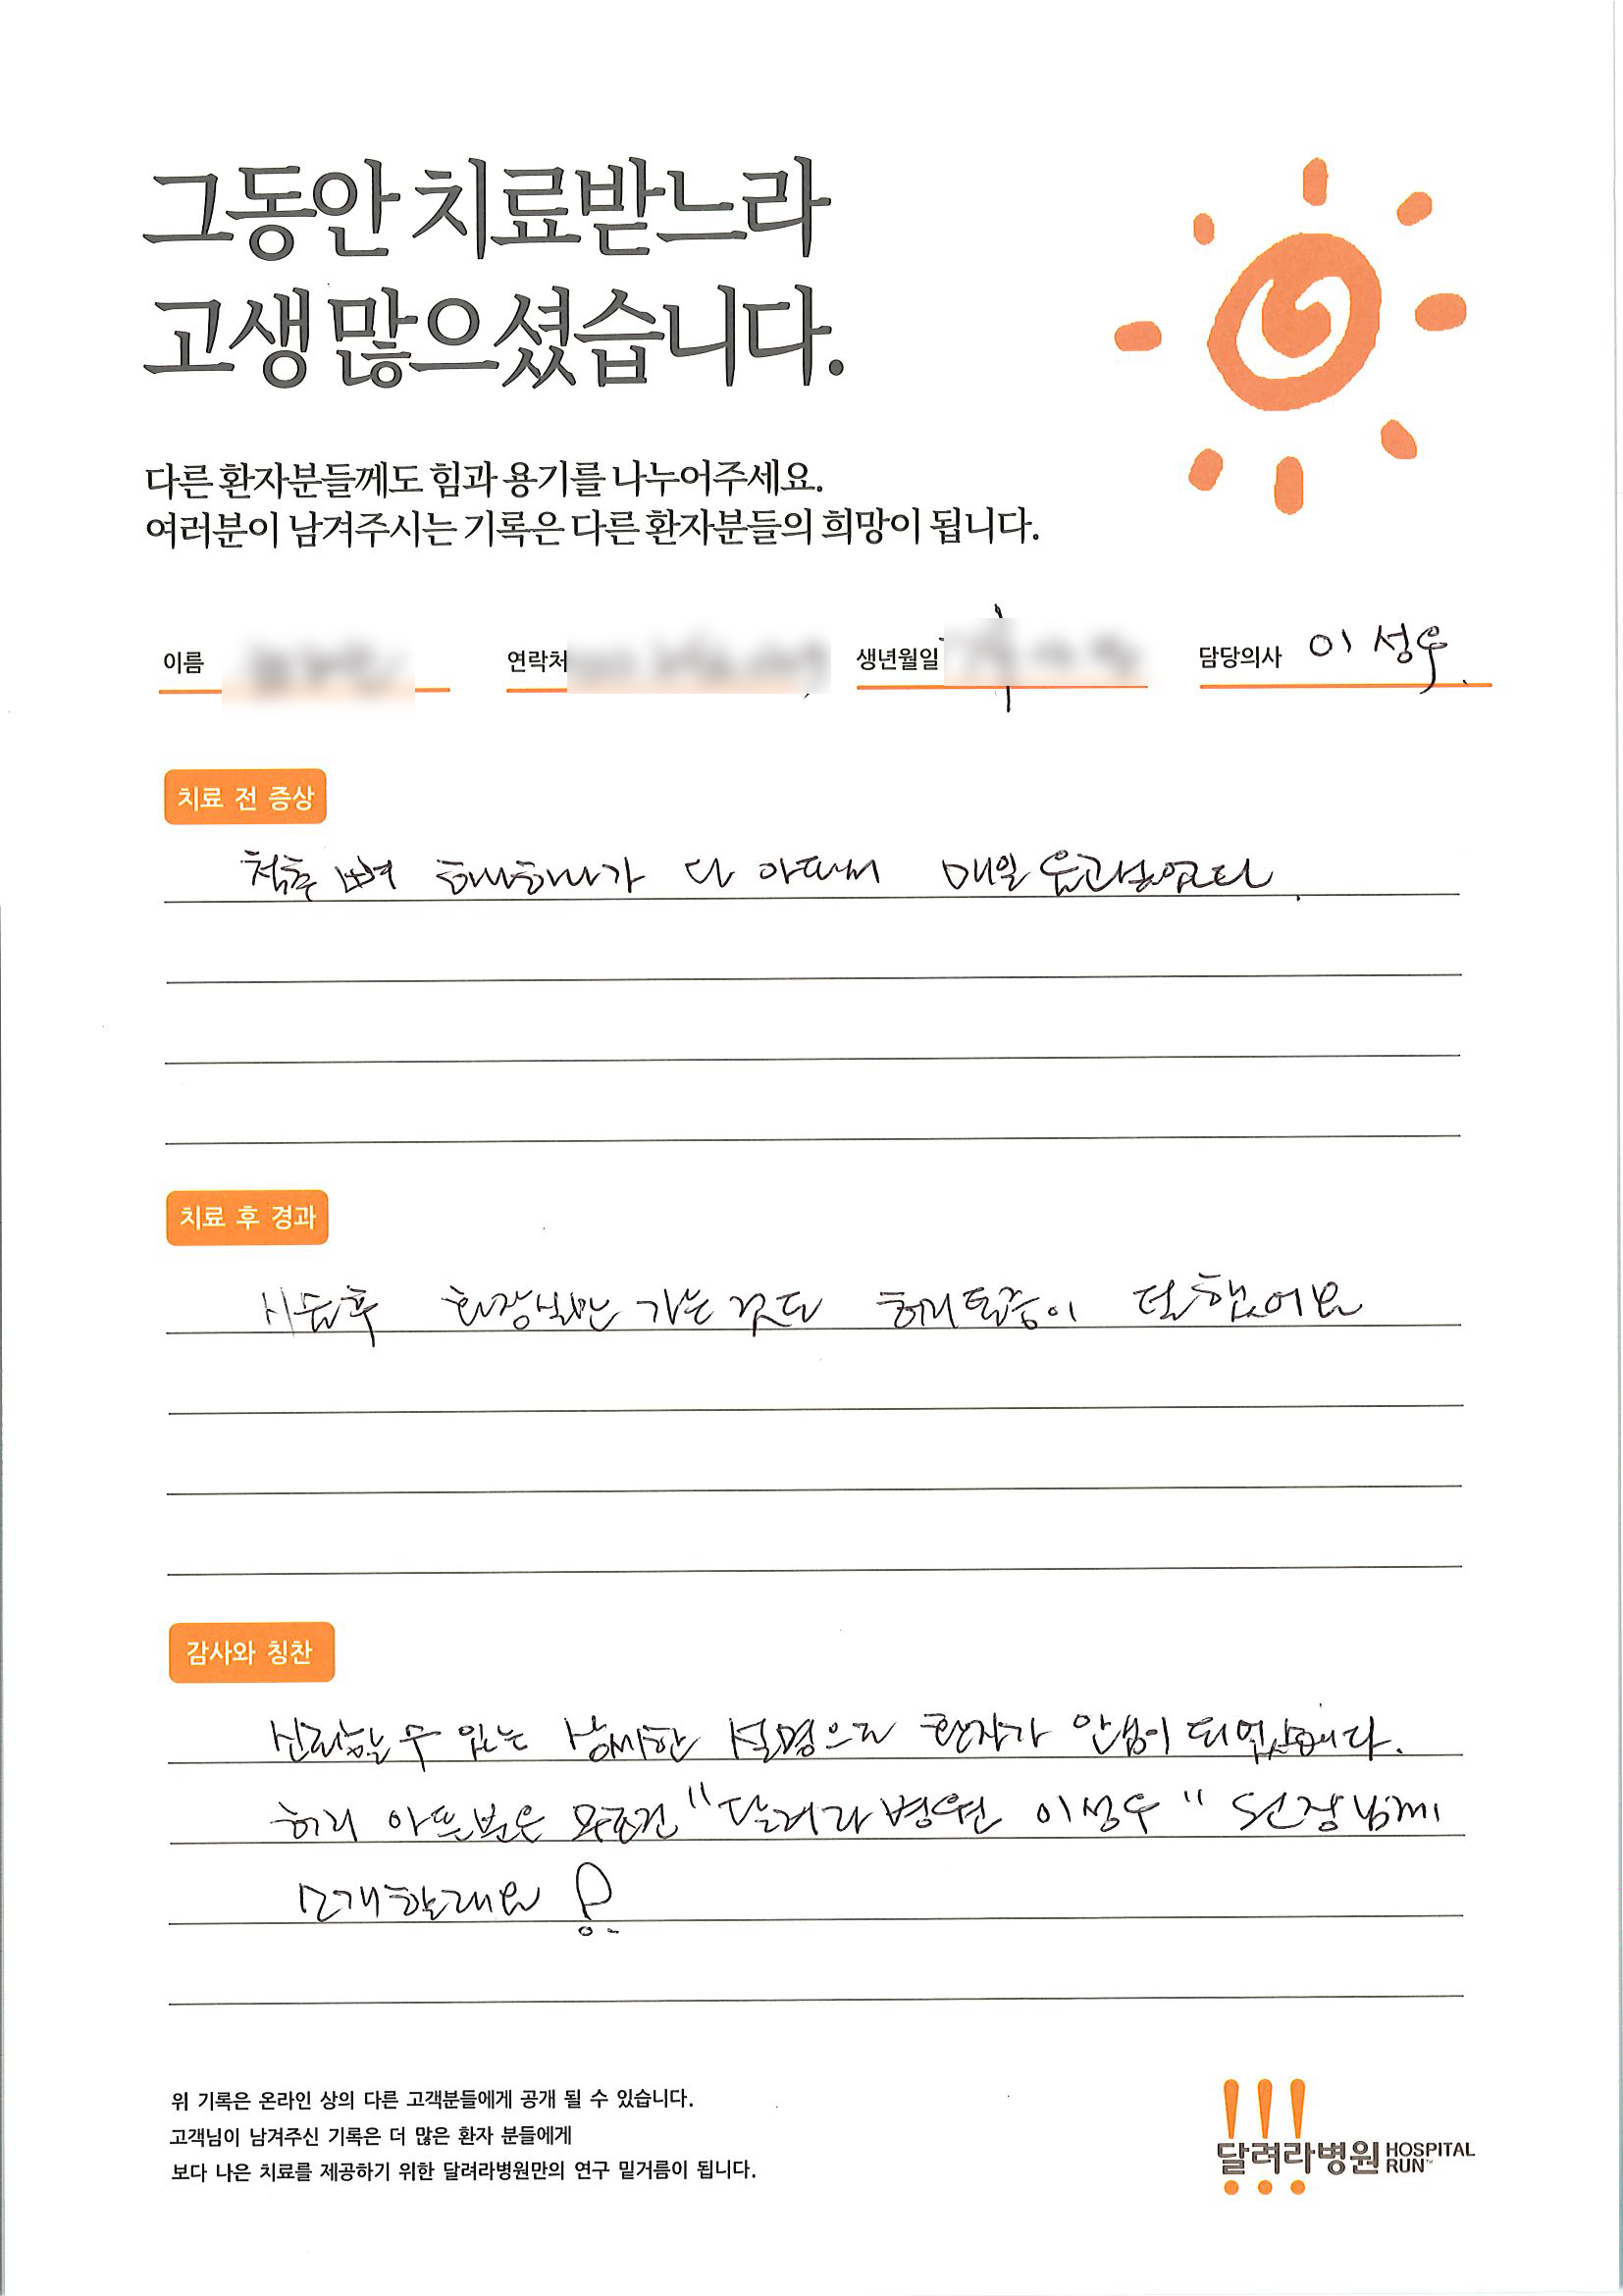 그동안 치료받느라
고생 많으셨습니다.
다른 환자분들께도 힘과 용기를 나누어주세요.
여러분이 남겨주시는 기록은 다른 환자분들의 희망이 됩니다.
이름 연락처 생년월일 담당의사 이성우
치료 전 증상
척추 뼈 하나하나가 다 아파서 매일
치료 후 경과
시술후 화장실만 가는 것도 허리통증이 덜했어요
감사와 칭찬
신뢰할 수 있는 상세한 설명으로 환자가 안심이 되었습니다.
허리 아픈분은 무조건 "달려라병원 이성우" 원장님께
소개할래요!
위 기록은 온라인 상의 다른 고객분들에게 공개 될 수 있습니다.
고객님이 남겨주신 기록은 더 많은 환자 분들에게
보다 나은 치료를 제공하기 위한 달려라병원만의 연구 밑거름이 됩니다.
달려라병원 HOSPITAL RUN™